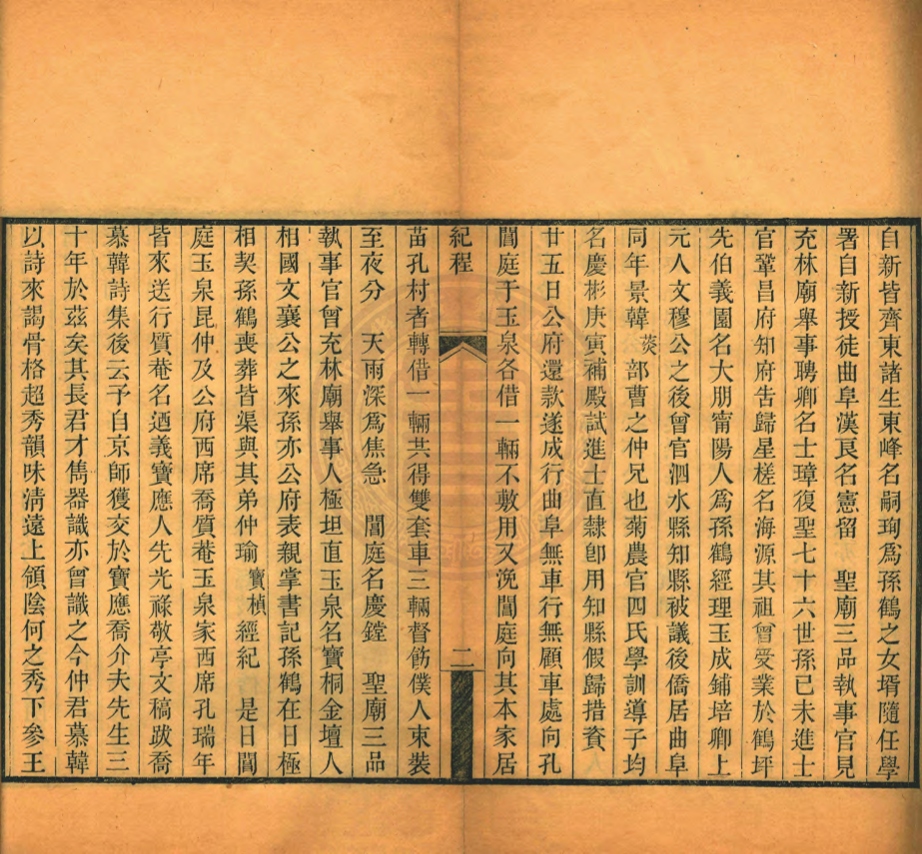 自新皆齊東諸生東峰名嗣珣爲孫鶴之女壻隨任學
署自新授徒曲阜漢艮名憲留　聖廟三品執事官見
充林廟舉事聘卿名士璋復聖七十六世孫己未進士
官鞏昌府知府告歸星槎名海源其祖曾受業於鶴坪
先伯義園名大朋甯陽人爲孫鶴經理玉成鋪培卿上
元人文穆公之後曾官泗水縣知縣被議後僑居曲阜
同年景韓 部曹之仲兄也菊農官四氏學訓導子均
名慶彬庚寅補殿試進士直隸卽用知縣假歸措資
廿五日公府還款遂成行曲阜無車行無顧車處向孔
閶庭于玉泉各借一輛不敷用又浼閶庭向其本家居
紀程
二
苗孔村者轉借一輛共得雙套車三輛督飭僕人束裝
至夜分　天雨深爲焦急　閶庭名慶鏜　聖廟三品
執事官曾充林廟舉事人極坦直玉泉名寶桐金壇人
相國文襄公之來孫亦公府表親掌書記孫鶴在日極
相契孫鶴喪葬皆渠與其弟仲瑜寶楨經紀　是日閶
庭玉泉昆仲及公府西席喬質菴玉泉家西席孔瑞年
皆來送行質菴名迺義寶應人先光祿敬亭文稿跋喬
慕韓詩集後云予自京師獲交於寶應喬介夫先生三
十年於茲矣其長君才雋器識亦曾識之今仲君慕韓
以詩來謁骨格超秀韻味淸遠上領陰何之秀下參王